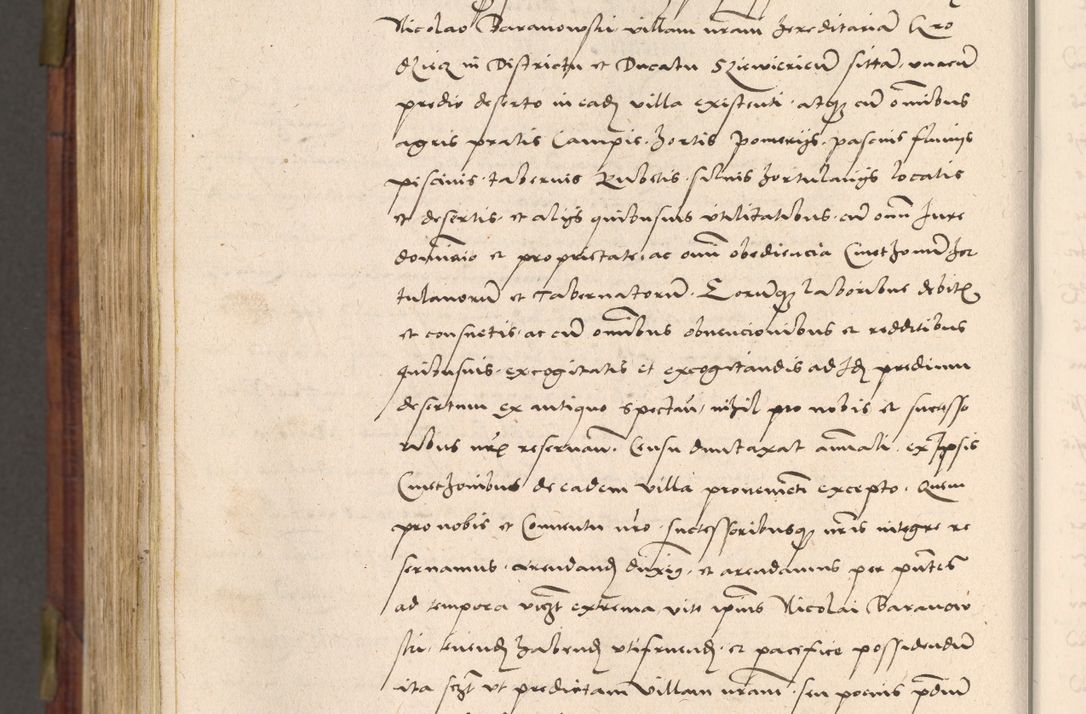 Nicolao Baranowski villam nram hereditariam Gro
dziecz in Districtu et Ducatu Sziewierien sittam, unacum
predio deserto in eadem villa existenti, atque cum omnibus
agris pratis Campis, hortis pomerijs, pascuis fluvijs
piscinis, tabernis Rubetis, silvis hortulanijs locatis
et desertis, et alijs quibusvis utilitatibus, cum omni Jure
dominio et proprietate, ac omni obediencia Cmethonum hor
tulanorum et Tabernatorum, Eorumque laboribus debitis
et consuetis, ac cum omnibus obvencionibus et redditibus
quibusvis, excogitatis et excogitandis ad Id predium
desertum ex antiquo spectan, nihil pro nobis et successo
ribus nris reservan, Censu duntaxat annali, ex Ipsis
Cmethonibus de eadem villa provenienti excepto, Quem
pro nobis et Conventu nro, successoribusque nris integre re
servamus, arendand duximus, et arendamus per pntes
ad tempora videlicet extrema vite ipsius Nicolai Baranow
ski, tenend habend utifruend, et pacifice possidendum
ita scilicet ut predictam villam nram, seu pocius